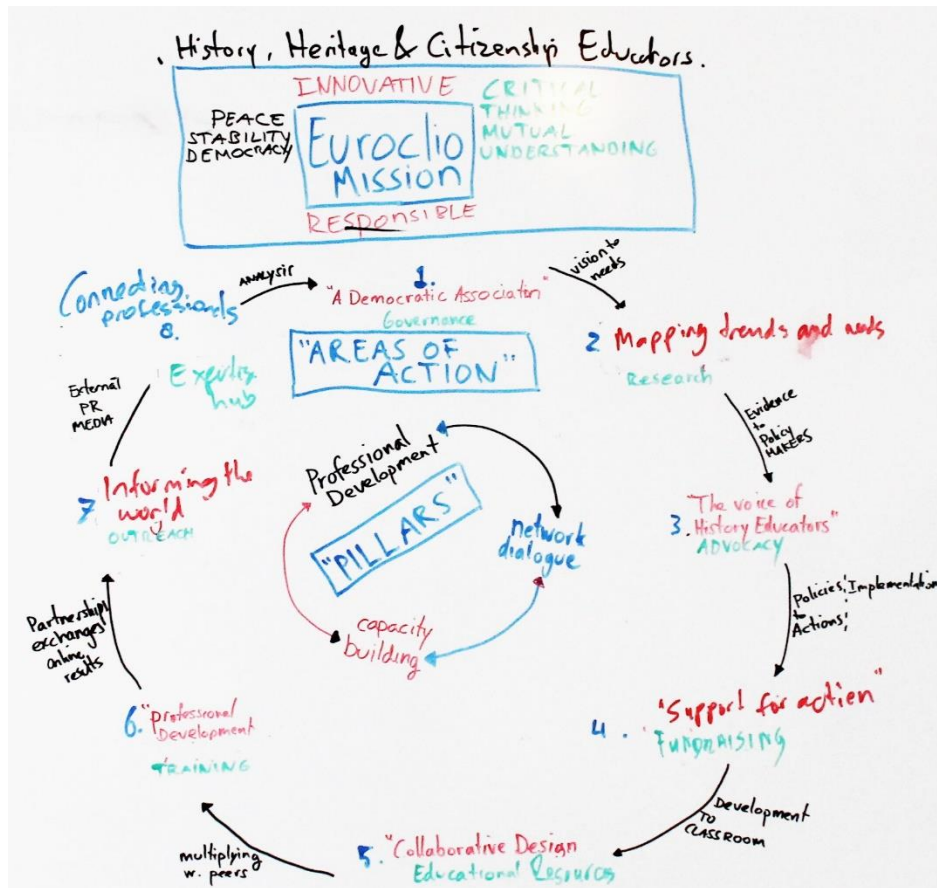 . History, Heritage & Citizenship Educators.
INNOVATIVE
CRITICAL
THINKING
MUTUAL
UNDERSTANDING
PEACE
STABILITY
DEMOCRACY
Euroclio
Mission
RESponsIBLE
1.
"A Democratic Association"
Governance
vision to
needs
"AREAS OF
ACTION"
2 Mapping trends and needs
Research
Evidence
to
Policy
MAKERS
3. "The voice of
History Educators"
ADVOCACY
Policies, Implementation
to
Actions,
4. "Support for action"
FUNDRAISING
Development
TO
CLASSROOM
5. "Collaborative Design
Educational Resources
multiplying
w. peers
6. "professional
Development
TRAINING
Partnership
exchanges
online
results
7 Informing the
world
OUTREACH
External
PR
MEDIA
Connecting
professionals
8.
Expertise
hub
ANALYSIS
Professional
Development
"PILLARS"
network
dialogue
capacity
building